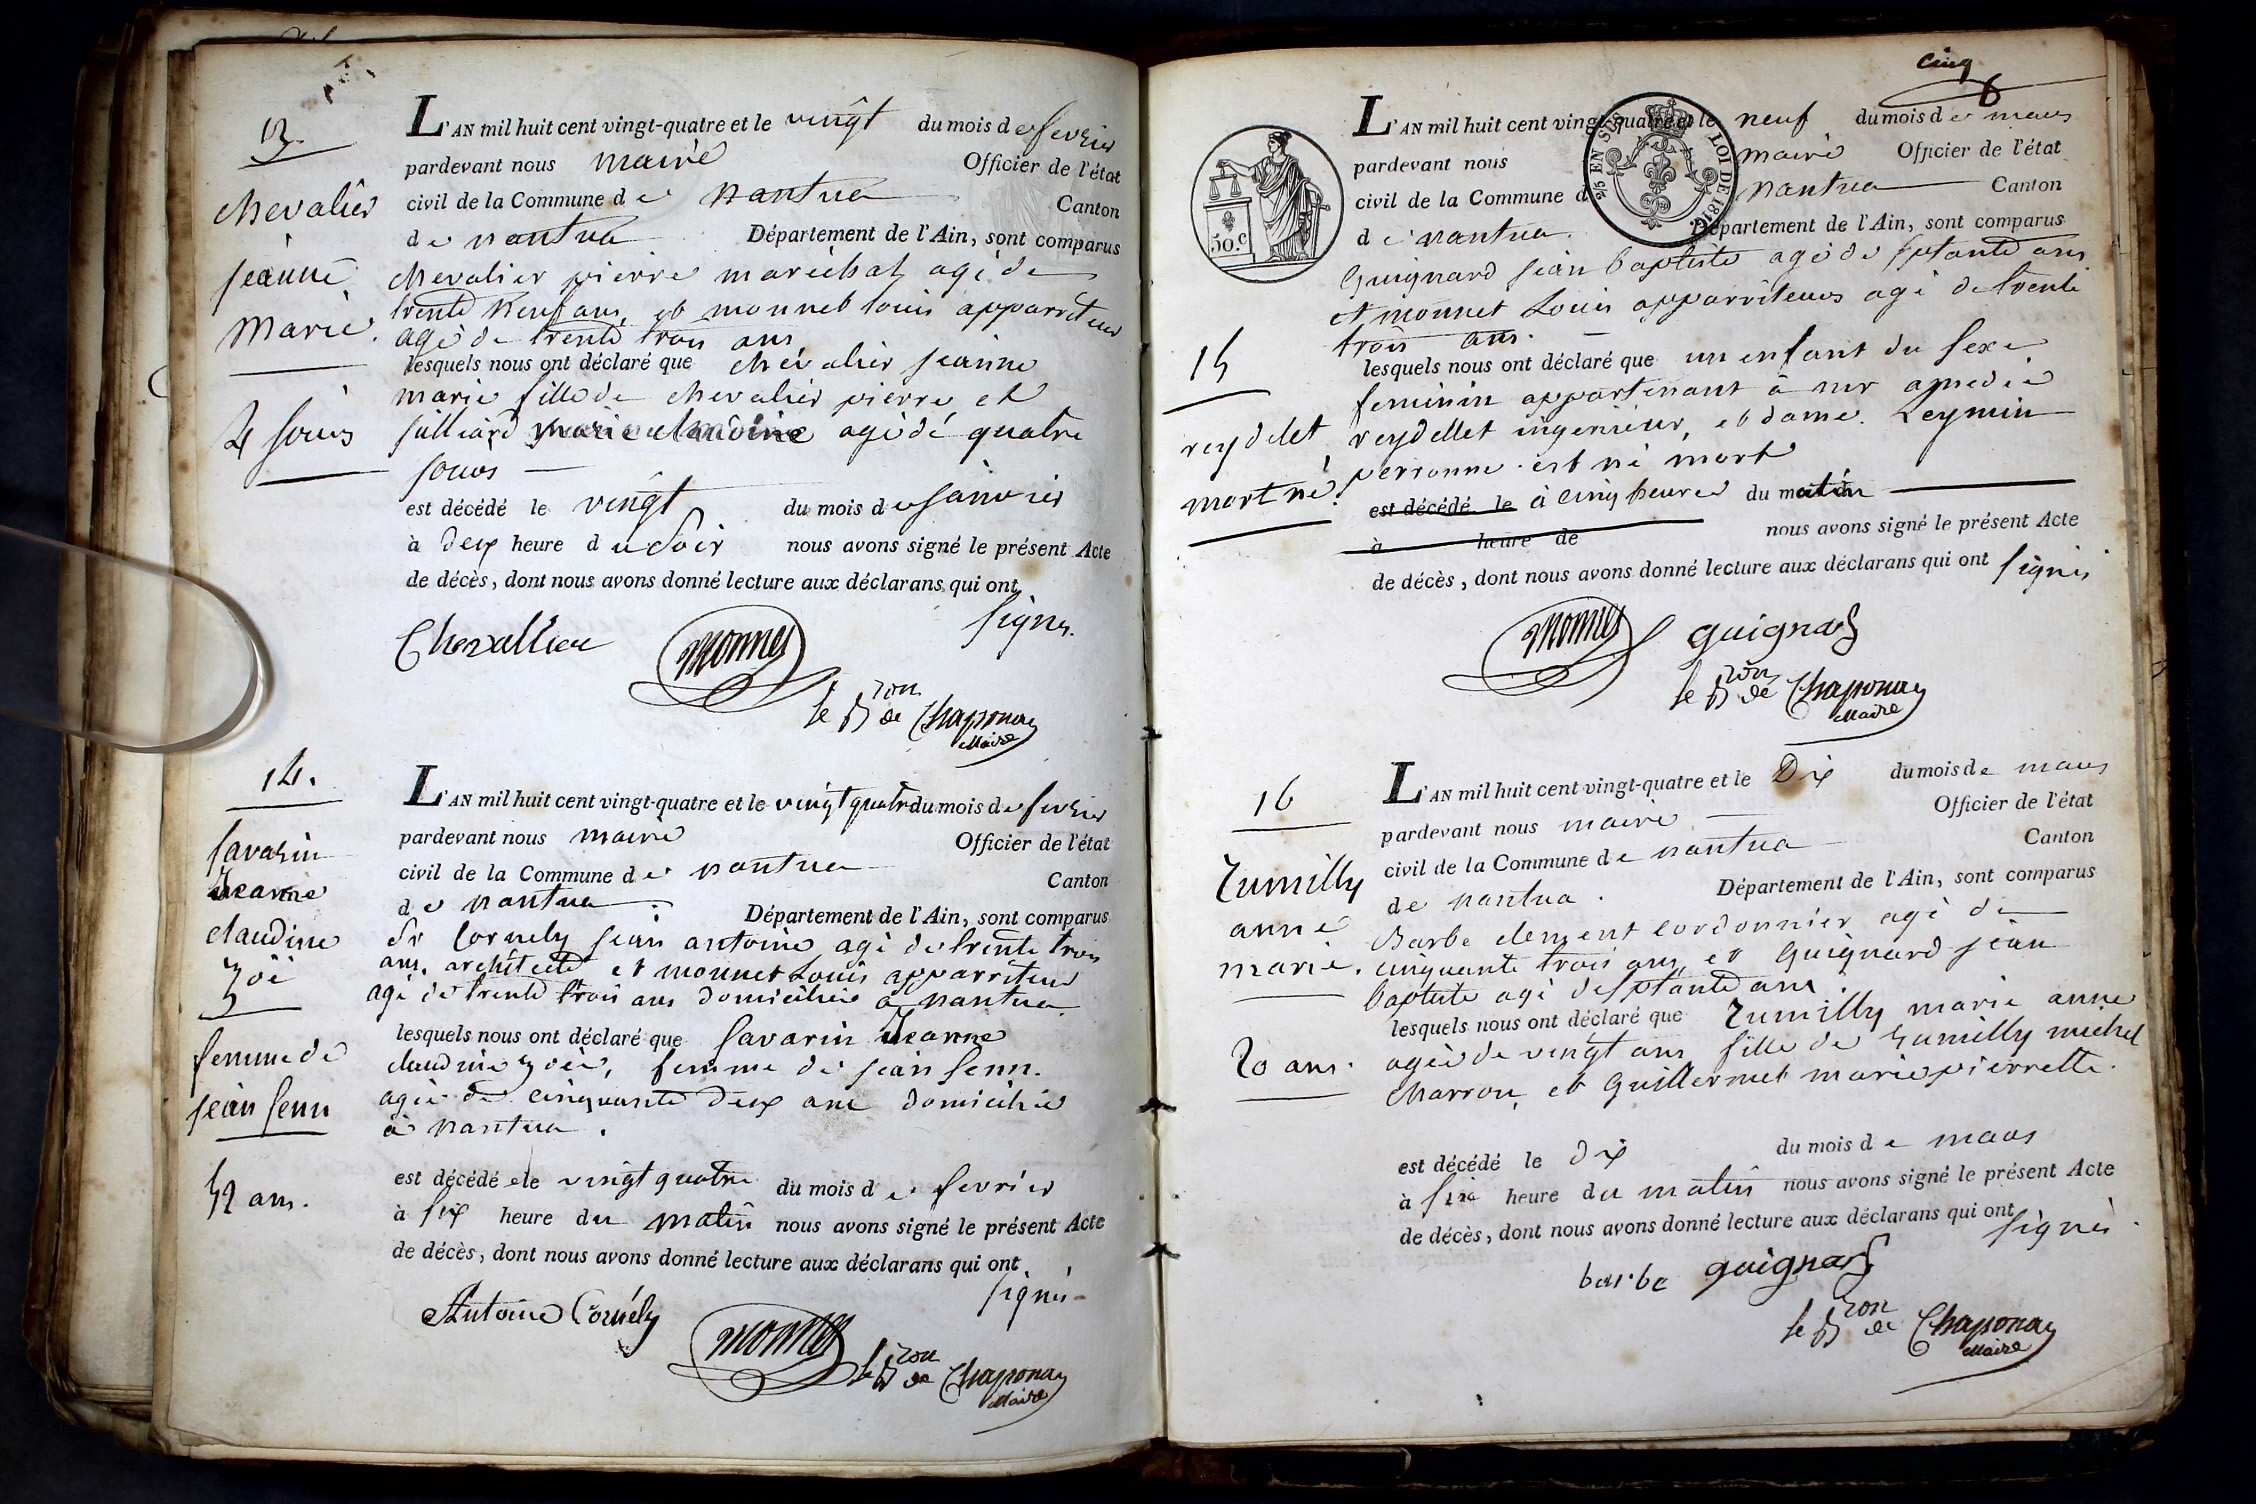 13.
chevalier
jeanne
marie.
4 jours
L'AN mil huit cent vingt-quatre et le vingt du mois de fevrier
pardevant nous maire Officier de l'état
civil de la Commune de nantua Canton
de nantua Département de l'Ain, sont comparus
chevalier pierre maréchal, agé de
trente neuf ans, et monnet louis apparriteur
agé de trente trois ans
lesquels nous ont déclaré que chevalier jeanne
marie fille de chevalier pierre et
julliard marie claudine agé de quatre
jours
est décédé le vingt du mois de janvier
à deux heure du soir nous avons signé le présent Acte
de décès, dont nous avons donné lecture aux déclarans qui ont
signés.
Chevallier monnet
le Bron de Chaponay
Maire
14.
savarin
Jeanne
claudine
zoé
femme de
jean senn
52 ans.
L'AN mil huit cent vingt-quatre et le vingt quatre du mois de fevrier
pardevant nous maire Officier de l'état
civil de la Commune de nantua Canton
de nantua. Département de l'Ain, sont comparus
Sr Cornely jean antoine agé de trente trois
ans, architecte et monnet Louis apparriteur
agé de trente trois ans domiciliés a nantua.
lesquels nous ont déclaré que savarin Jeanne
claudine zoée, femme de jean senn.
agée de cinquante deux ans domiciliée
à nantua.
est décédée le vingt quatre du mois de fevrier
à six heure du matin nous avons signé le présent Acte
de décès, dont nous avons donné lecture aux déclarans qui ont
signés.
Antoine Cornély monnet
le Bron de Chaponay
Maire
cinq
6
50.c
2/5 EN SUS LOI DE 1816.
15
reydelet
mort né.
L'AN mil huit cent vingt-quatre et le neuf du mois de mars
pardevant nous maire Officier de l'état
civil de la Commune d nantua Canton
de nantua. Département de l'Ain, sont comparus
Guignard jean baptiste agé de septante ans
et monnet Louis apparriteurs agé de trente
trois ans.
lesquels nous ont déclaré que un enfant du sexe
feminin appartenant à mr amedée
reydellet ingenieur, et dame. Leymin
perronne est né mort
est décédé le à cinq heures du matin
à heure de nous avons signé le présent Acte
de décès, dont nous avons donné lecture aux déclarans qui ont signés
monnet guignard
le Bron de Chaponay
Maire
16
Rumilly
anne
marie.
20 ans.
L'AN mil huit cent vingt-quatre et le Dix du mois de mars
pardevant nous maire Officier de l'état
civil de la Commune de nantua Canton
de nantua. Département de l'Ain, sont comparus
Barbe clement cordonnier agé de
cinquante trois ans, et Guignard jean
baptiste agé de septante ans
lesquels nous ont déclaré que Rumilly marie anne
agée de vingt ans fille de Rumilly michel
charron, et Guillermet marie pierrette.
est décédé le dix du mois de mars
à six heure du matin nous avons signé le présent Acte
de décès, dont nous avons donné lecture aux déclarans qui ont
signés.
barbe guignard
le Bron de Chaponay
Maire